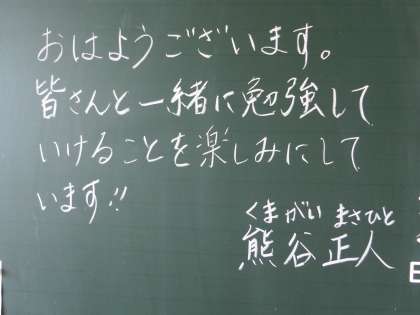 おはようございます。
皆さんと一緒に勉強して
いけることを楽しみにして
います!!
くまがい まさひと
熊谷正人